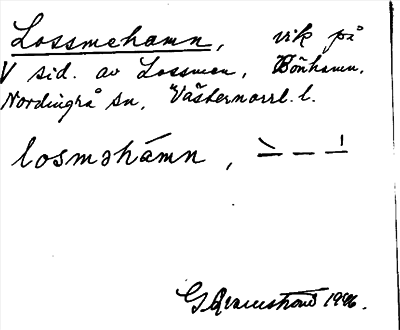 Lossmehamn, vik på
V sid. av Lossmen, Bönhamn,
Nordingrå sn, Västernorrl. l.
losməhámn,
1946.